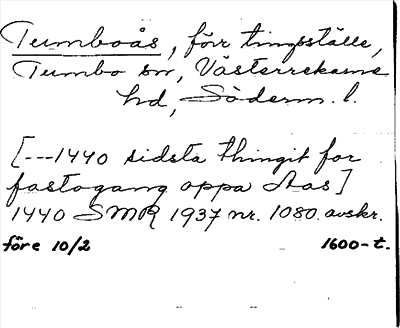 Tumboås, förr tingsställe,
Tumbo sn, Västerrekarne
hd, Söderm. l.
[---1440 sidsta thingit for
fastogang oppa Aas]
1440 SMR 1937 nr. 1080. avskr.
före 10/2 1600-t.